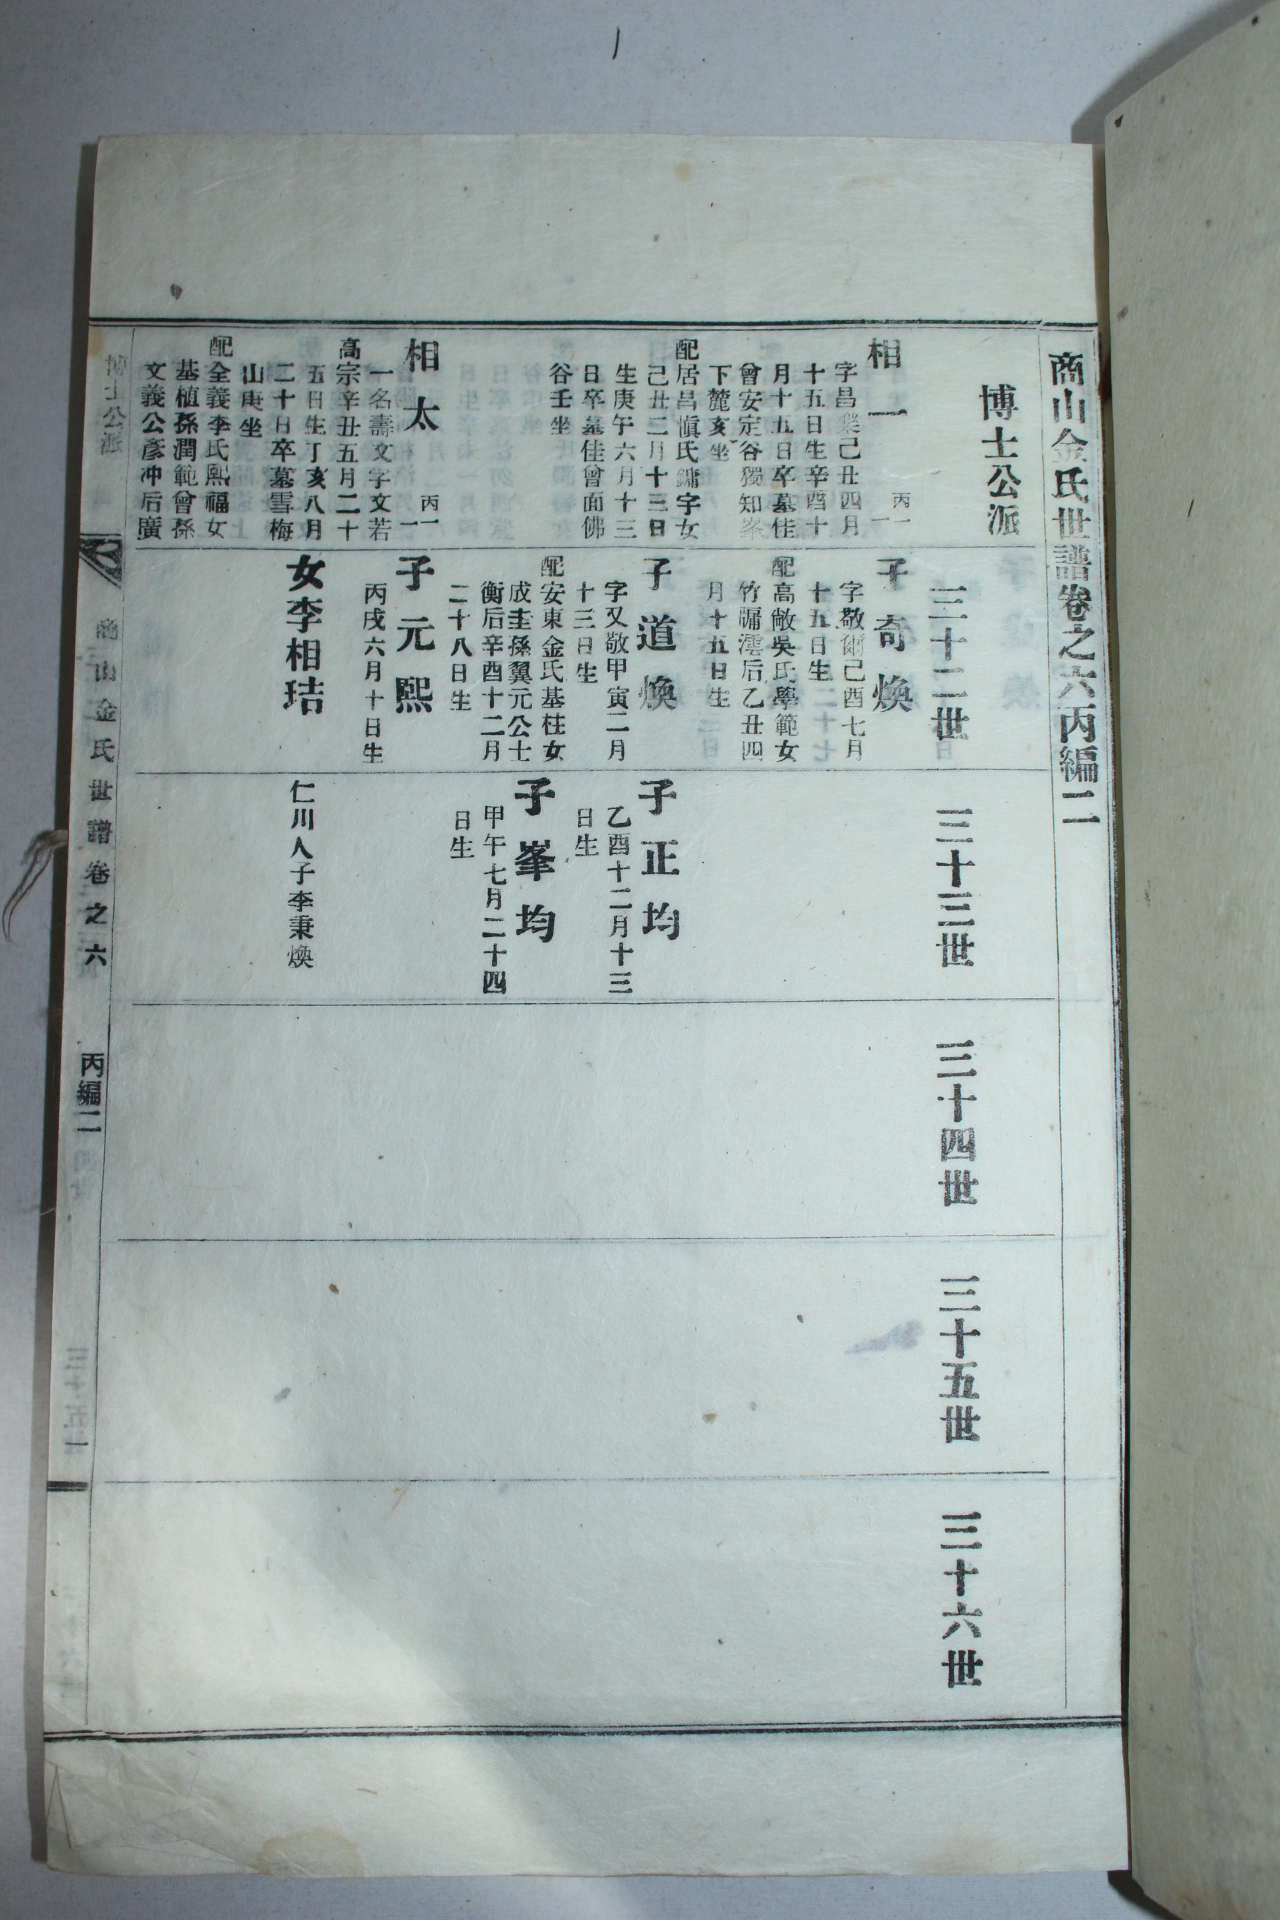 商山金氏世譜卷之六丙編二
博士公派
三十二世
三十三世
三十四世
三十五世
三十六世
相一
丙一
一
字昌業己丑四月
十五日生辛酉十
月十五日卒墓佳
會安定谷獨知峯
下麓亥坐
配居昌愼氏鏞字女
己丑二月十三日
生庚午六月十三
日卒墓佳會面佛
谷壬坐
相太
丙一
一
一名壽文字文若
高宗辛丑五月二十
五日生丁亥八月
二十日卒墓雪梅
山庚坐
配全義李氏熙福女
基植孫潤範曾孫
文義公彥冲后廣
子奇煥
字敬爾己酉七月
十五日生
配高敞吳氏學範女
竹牖澐后乙丑四
月十五日生
子道煥
字又敬甲寅二月
十三日生
配安東金氏基柱女
成圭孫翼元公士
衡后辛酉十二月
二十八日生
子元熙
丙戌六月十日生
女李相琂
子正均
乙酉十二月十三
日生
子峯均
甲午七月二十四
日生
仁川人子李秉煥
博士公派
商山金氏世譜卷之六
丙編二
一